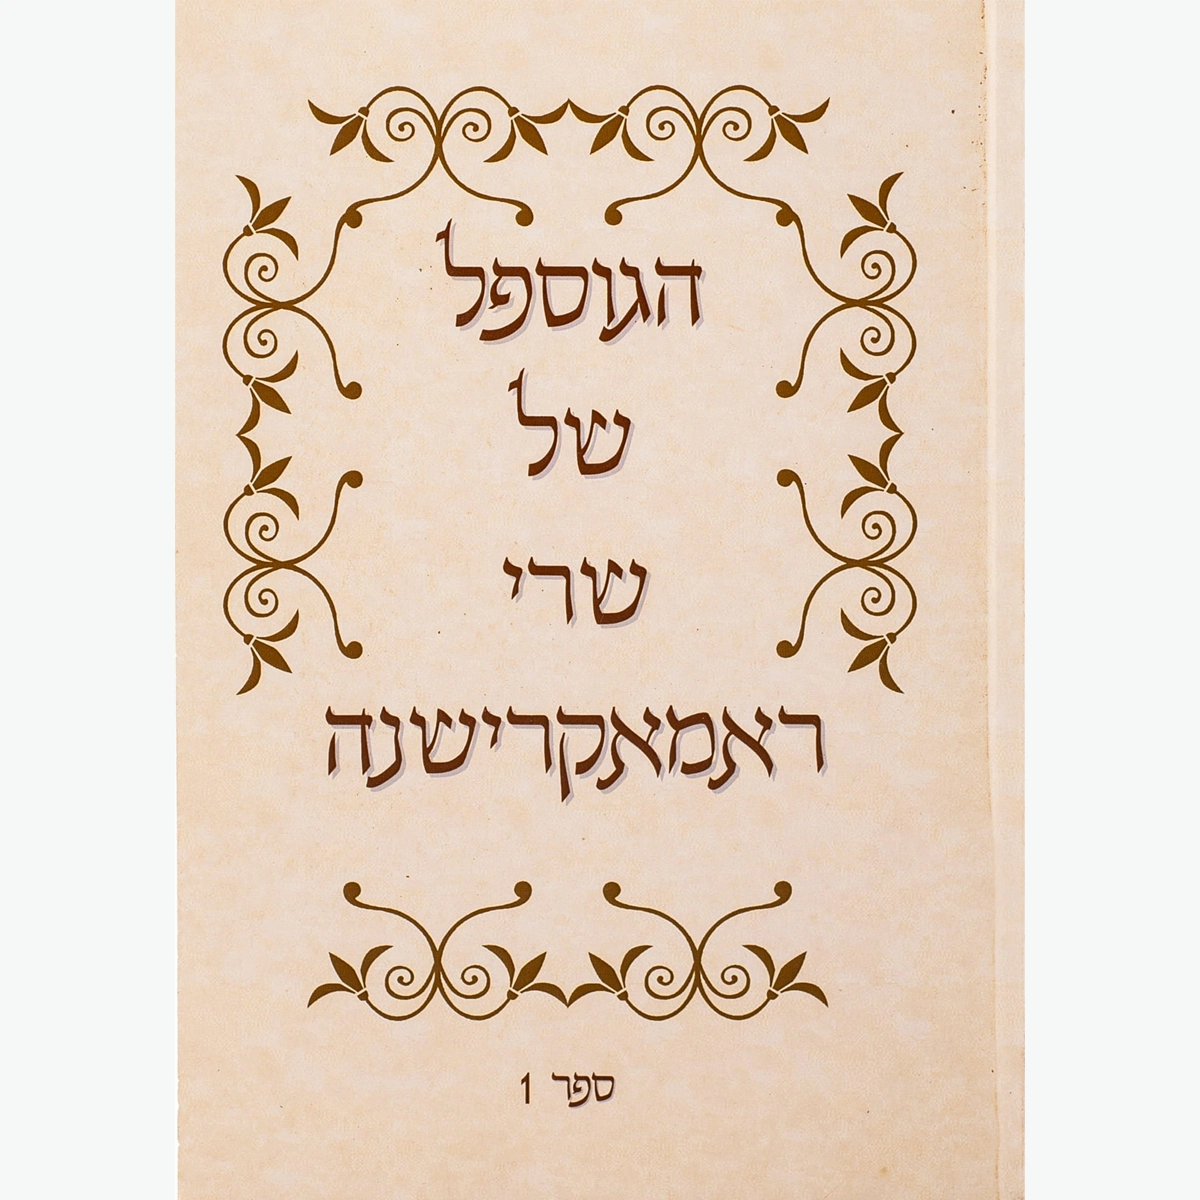 הגוספל
של
שרי
ראמאקרישנה
ספר 1